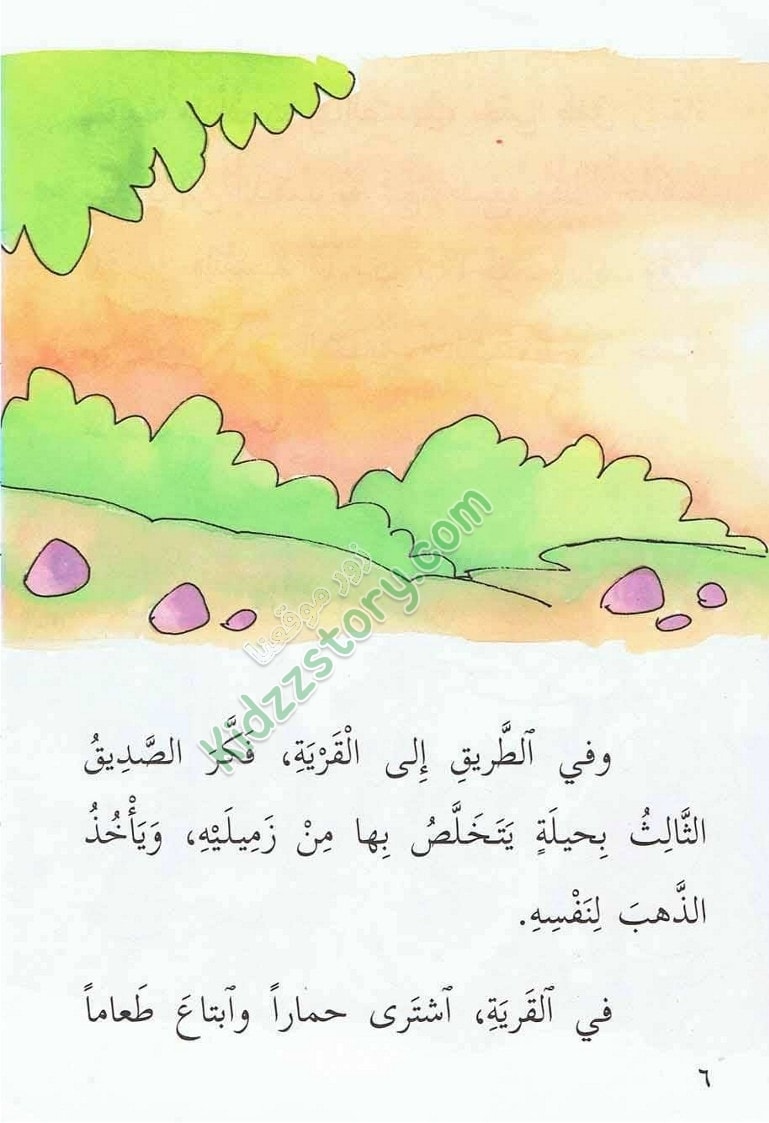 زوروا موقعنا
Kidzzstory.com
وفي ٱلطَّريقِ إِلى الْقَرْيَةِ، فَكَّرَ الصَّدِيقُ
الثَّالِثُ بِحيلَةٍ يَتَخَلَّصُ بِها مِنْ زَمِيلَيْهِ، وَيَأْخُذُ
الذَّهبَ لِنَفْسِهِ.
في ٱلقَريَةِ، ٱشتَرى حماراً وٱبتاعَ طَعاماً
٦